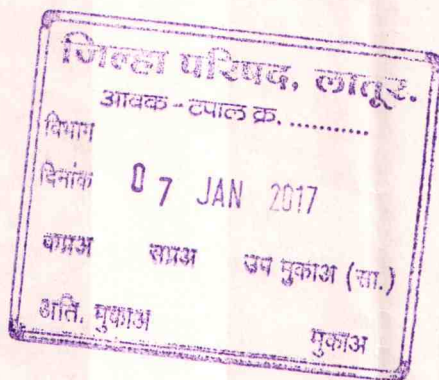 जिल्हा परिषद, लातूर.
आवक - टपाल क्र. ............
विभाग
दिनांक 07 JAN 2017
कप्रअ सप्रअ उप मुकाअ (सा.)
अति. मुकाअ मुकाअ